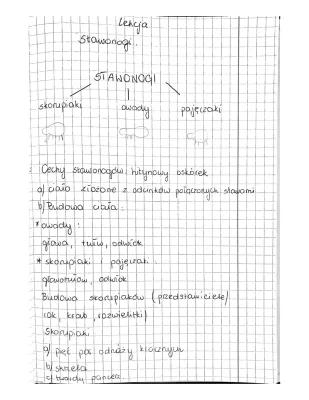 Lekcja
Stawonogi.
STAWONOGI
skorupiaki owady pajęczaki
Cechy stawonogów: hitynowy oskórek
a) ciało złożone z odcinków połączonych stawami
b) Budowa ciała:
* owady:
głowa, tułów, odwłok
* skorupiaki i pajęczaki:
głowotułów, odwłok
Budowa skorupiaków (przedstawiciele)
rak, krab, rozwielitki)
Skorupiaki
a) pięć par odnóży krocznych
b) skrzela
c) twardy pancerz